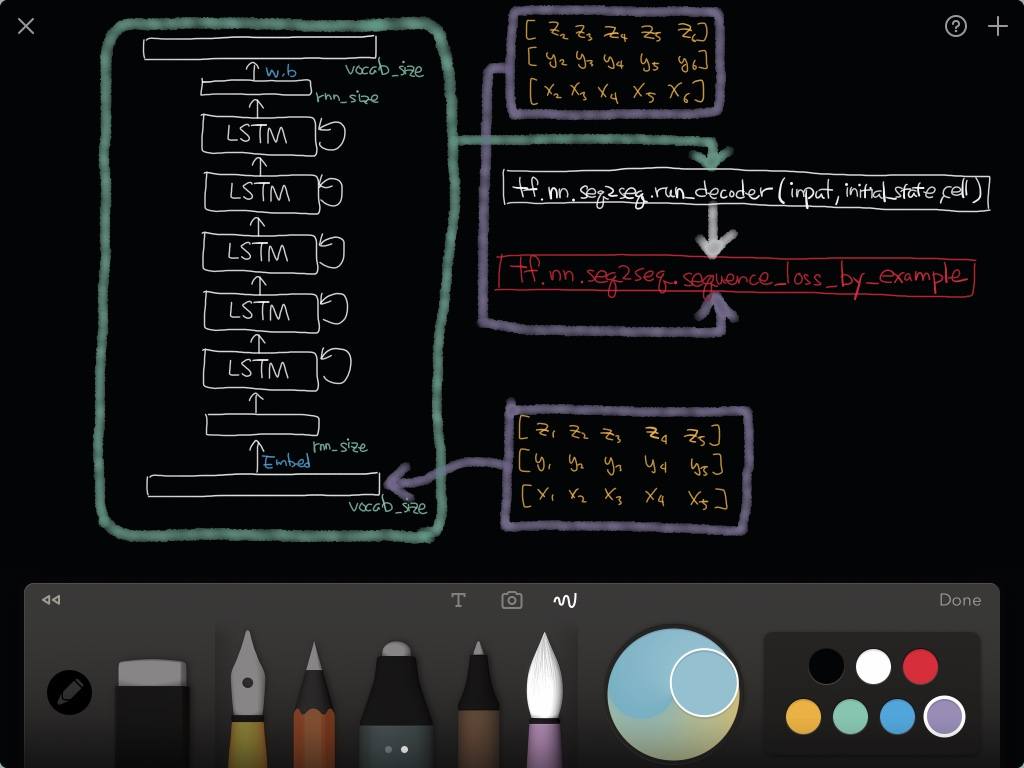 vocab_size
w.b
rnn_size
LSTM
LSTM
LSTM
LSTM
LSTM
rnn_size
Embed
vocab_size
[ z₂ z₃ z₄ z₅ z₆ ]
[ y₂ y₃ y₄ y₅ y₆ ]
[ x₂ x₃ x₄ x₅ x₆ ]
tf.nn.seq2seq.run_decoder(input, initial_state, cell)
tf.nn.seq2seq.sequence_loss_by_example
[ z₁ z₂ z₃ z₄ z₅ ]
[ y₁ y₂ y₃ y₄ y₅ ]
[ x₁ x₂ x₃ x₄ x₅ ]
T
Done